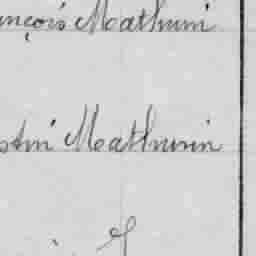 ançois Mathurin
stin Mathurin